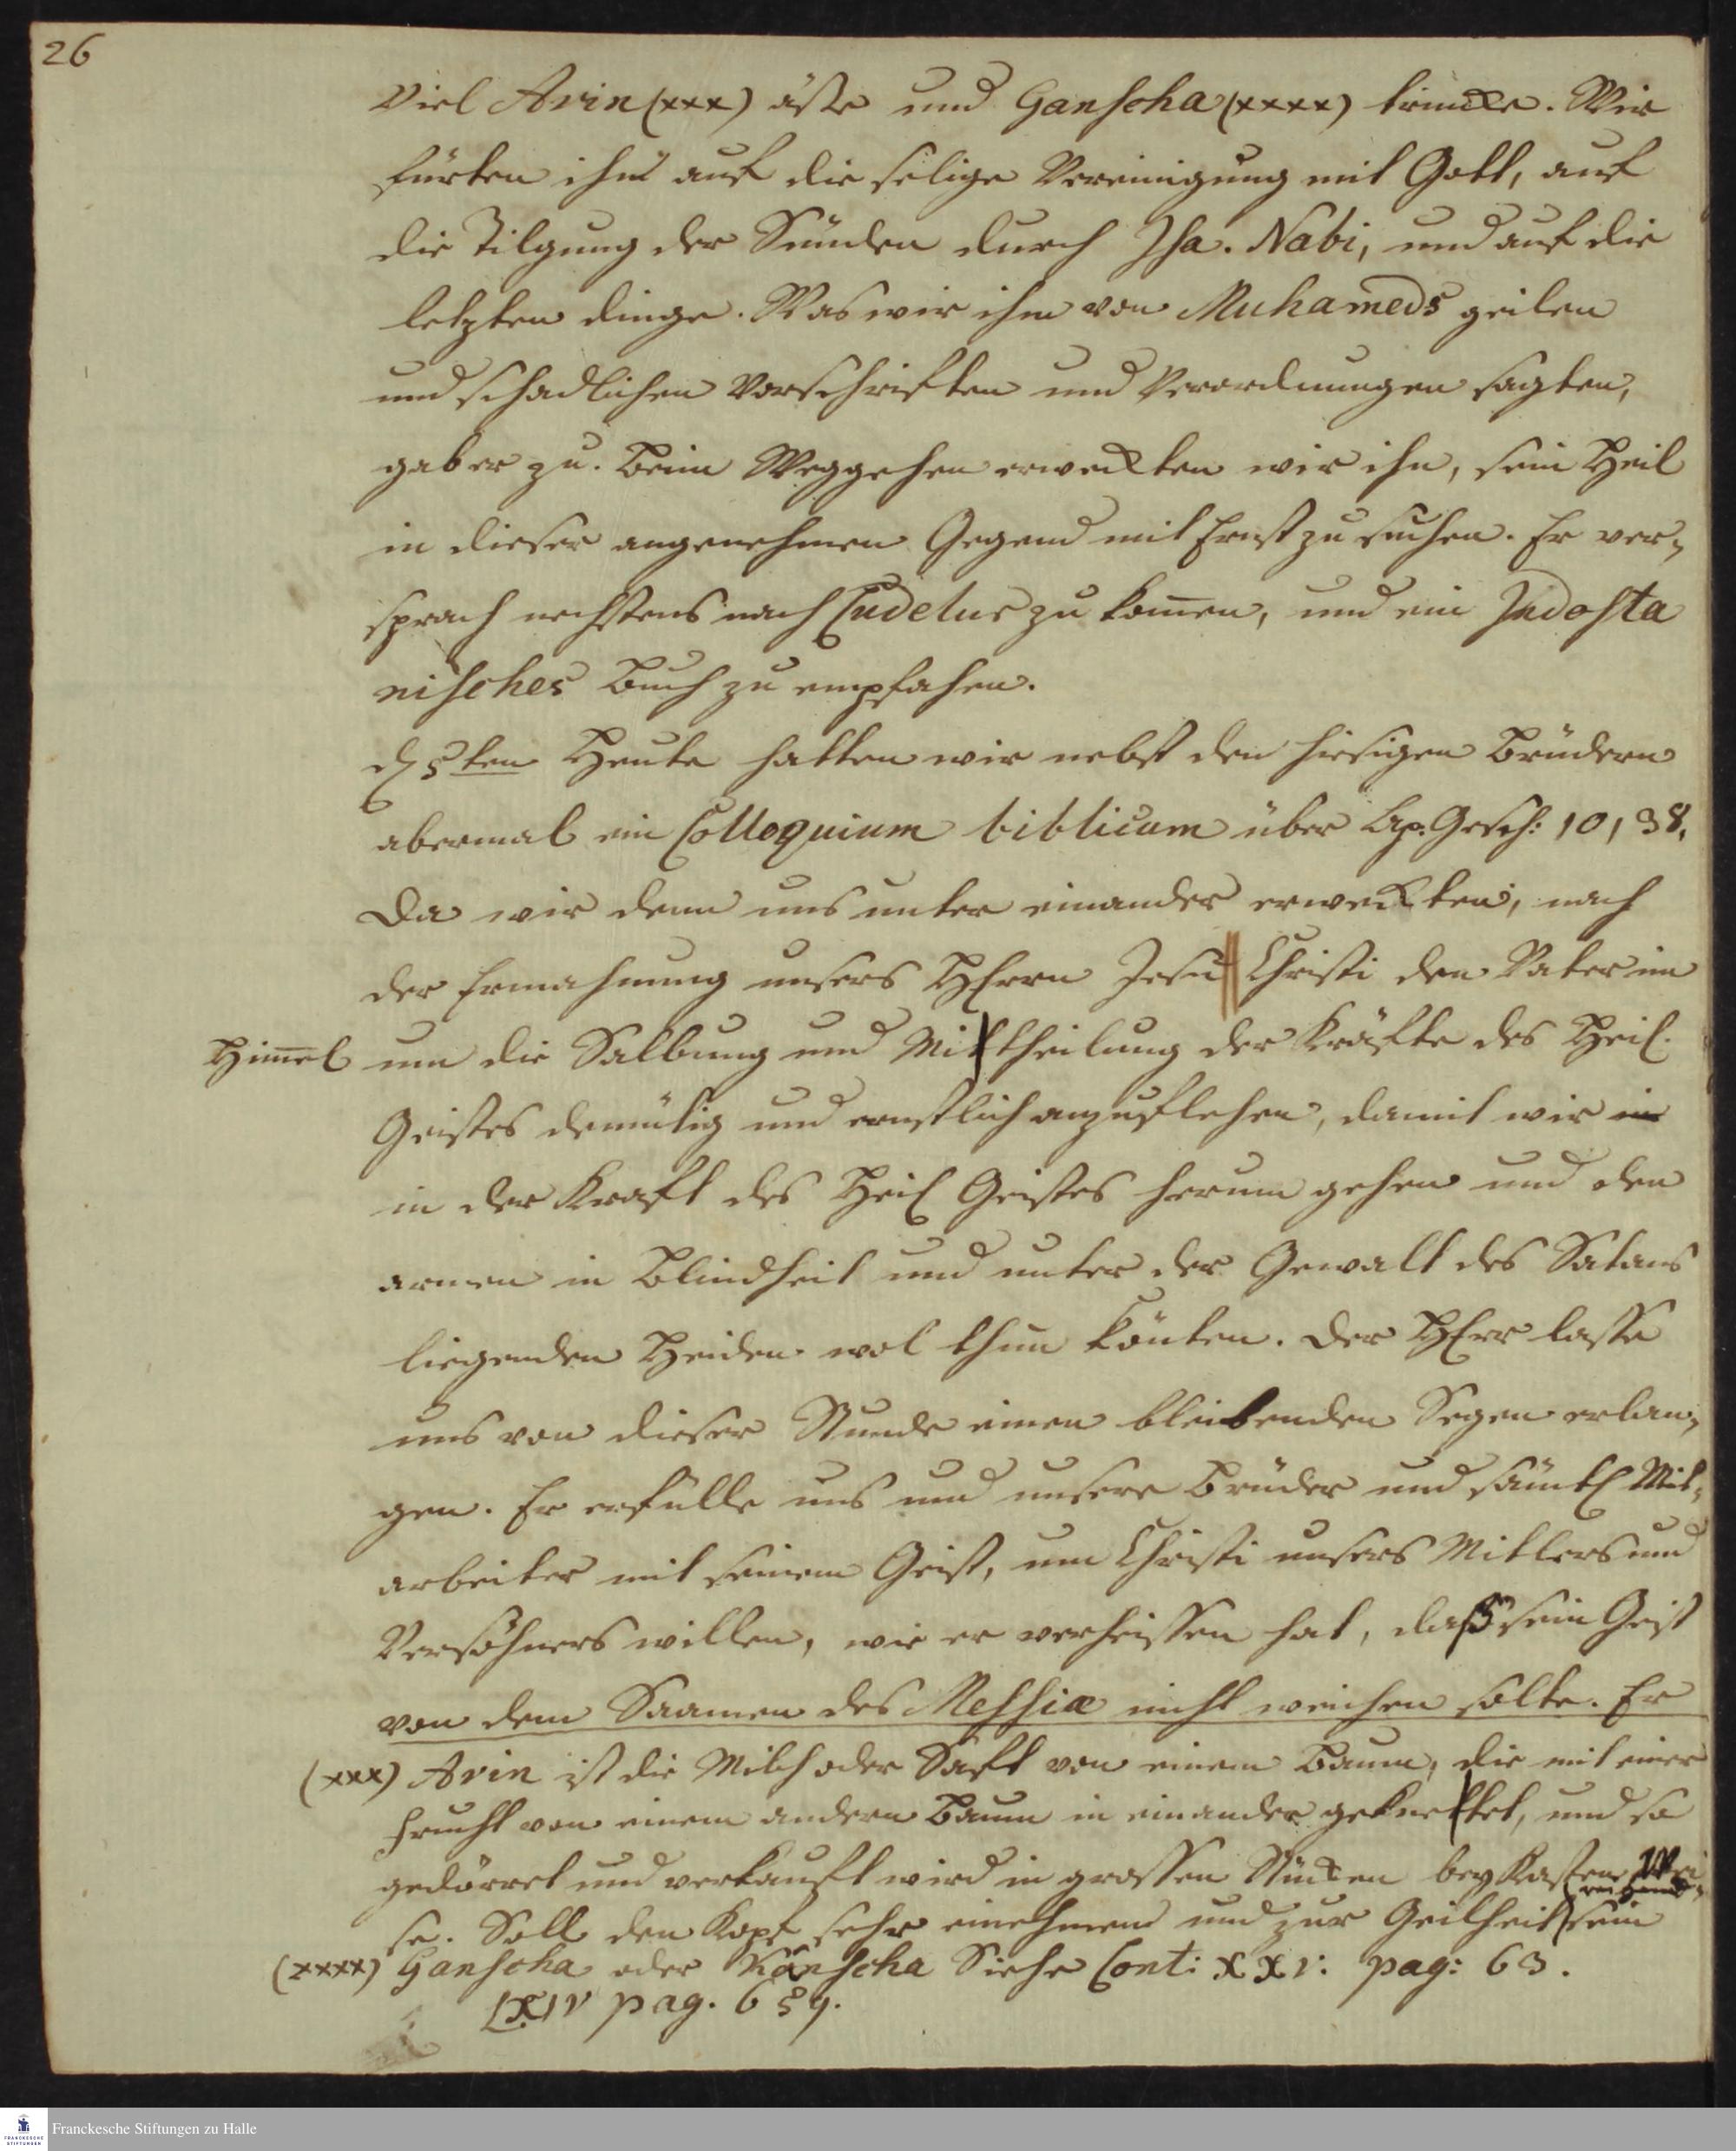 26
Viel Avin (xxx) äße und Ganscha (xxxx) trincke. Wir
fürten ihn auf die selige Vereinigung mit Gott, auf
die Tilgung der Sünden durch Isa. Nabi, und auf die
letzten dinge. Was wir ihm von Muhameds geilen
und schadlichen Vorschriften und Verordnungen sagten,
gab er zu. Beim Weggehen erweckten wir ihn, sein Heil
in dieser angenehmen Gegend mit Ernst zu suchen. Er ver,
sprach nechstens nach Cudelur zu komen, und ein Indosta
nisches Buch zu empfahen.
d 5ten Heute hatten wir nebst den hiesigen Brüdern
abermal ein Colloquium biblicum über Ap. Gesch: 10, 38.
Da wir denn uns unter einander erweckten, nach
der Ermahnung unsers HErrn Jesu Christi den Vater im
Himel um die Salbung und Mittheilung der Kräfte des Heil.
Geistes demütig und ernstlich anzuflehen, damit wir in
in der Kraft des Heil Geistes herum gehen und den
armen in Blindheit und unter der Gewalt des Satans
liegenden Heiden wol thun könten. Der HErr lasse
uns von dieser Stunde einen bleibenden Segen erlan,
gen. Er erfülle uns und unsere Brüder und sämtl Mit,
arbeiter mit seinem Geist, um Christi unsers Mitlers und
Versöhners willen, wie er verheissen hat, daß sein Geist
von dem Saamen des Messiæ nicht weichen solte. Er
(xxx) Avin ist die Milch oder Saft von einem Baum, die mit einer
Frucht von einem andern Baum in einander geknettet, und so
gedörret und verkauft wird in grossen Stücken bey Kasten Wei,
se. Soll den Kopf sehr einehmen und zur Geilheit reitzend sein
(xxxx) Ganscha oder Kanscha Siehe Cont: XXV: pag: 63.
LXIV pag. 659.
Franckesche Stiftungen zu Halle